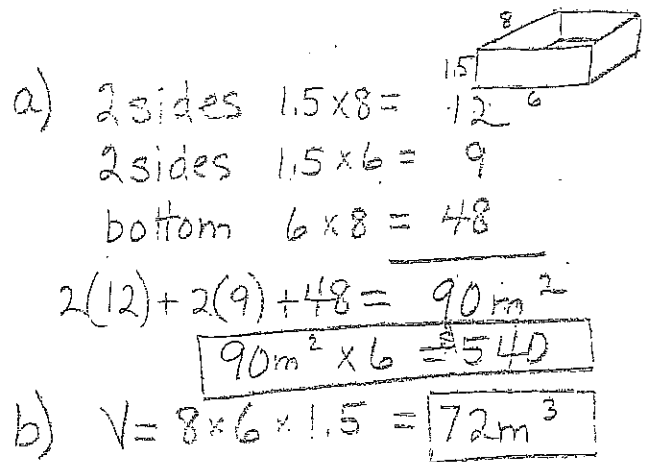 8
1.5
6
a) 2 sides 1.5 × 8 = 12
2 sides 1.5 × 6 = 9
bottom 6 × 8 = 48
2(12) + 2(9) + 48 = 90 m²
90m² × 6 = $540
b) V = 8 × 6 × 1.5 = 72m³